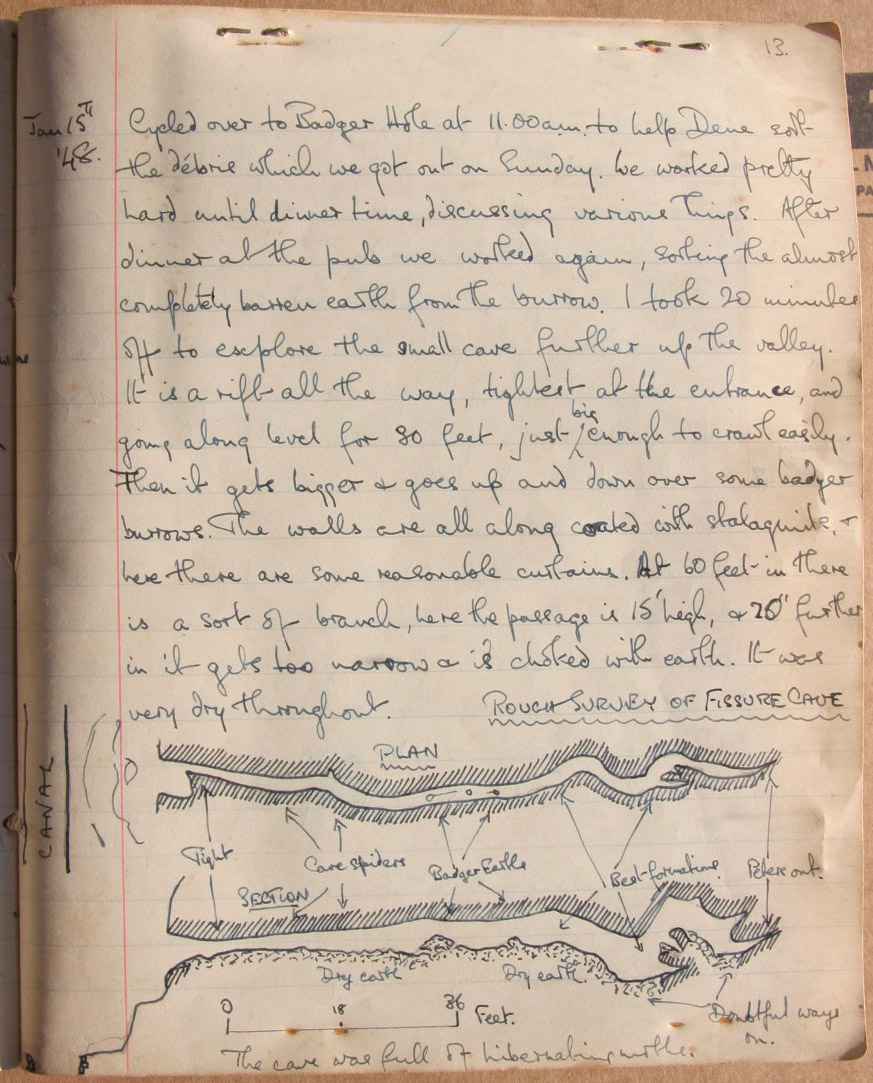 13.
Jan 15th '48.
Cycled over to Badger Hole at 11.00am. to help Dene sort
the débris which we got out on Sunday. We worked pretty
hard until dinner time, discussing various things. After
dinner at the pub we worked again, sorting the almost
completely barren earth from the burrow. I took 20 minutes
off to explore the small cave further up the valley.
It is a rift all the way, tightest at the entrance, and
going along level for 30 feet, just big enough to crawl easily.
Then it gets bigger & goes up and down over some badger
burrows. The walls are all along coated with stalagmite, &
here there are some reasonable curtains. At 60 feet in there
is a sort of branch, here the passage is 15' high, & 20' further
in it gets too narrow & is choked with earth. It was
very dry throughout.
ROUGH SURVEY OF FISSURE CAVE
PLAN
CANAL
Tight
Cave spiders
Badger Earths
Best formations
Peters out.
SECTION
Dry earth
Dry earth
Doubtful ways
on.
0 18 36 Feet.
The cave was full of hibernating moths.